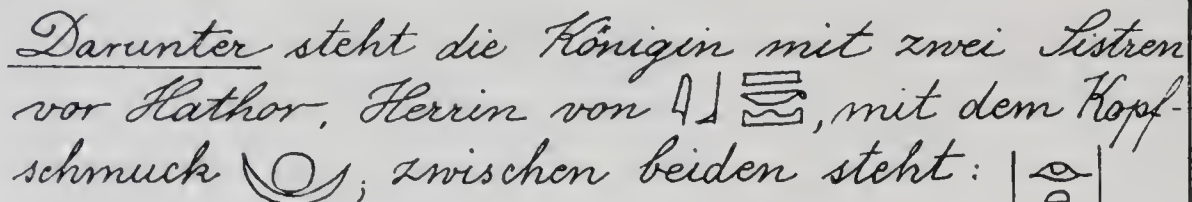 Darunter steht die Königin mit zwei Sistren
vor Hathor, Herrin von 𓇋𓃀, mit dem Kopf-
schmuck ; zwischen beiden steht: 𓁹